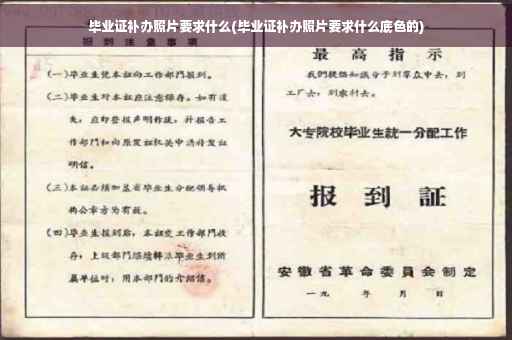 毕业证补办照片要求什么(毕业证补办照片要求什么底色的)
报到注意事项
(一)毕业生凭本证向工作部门报到。
(二)毕业生对本证应注意保存。如有遗
失，应即登报声明作废，并报告工
作部门和向原发证机关申请补发证
明信。
(三)本证必须加盖省毕业生分配领导机
构公章方为有效。
(四)毕业生报到后，本证交工作部门收
存；上级部门继续转派毕业生到所
属单位时，用本部门的介绍信。
最高指示
我们提倡知识分子到群众中去，到
工厂去，到农村去。
大专院校毕业生统一分配工作
报到証
安徽省革命委員会制定
一九 年 月 日